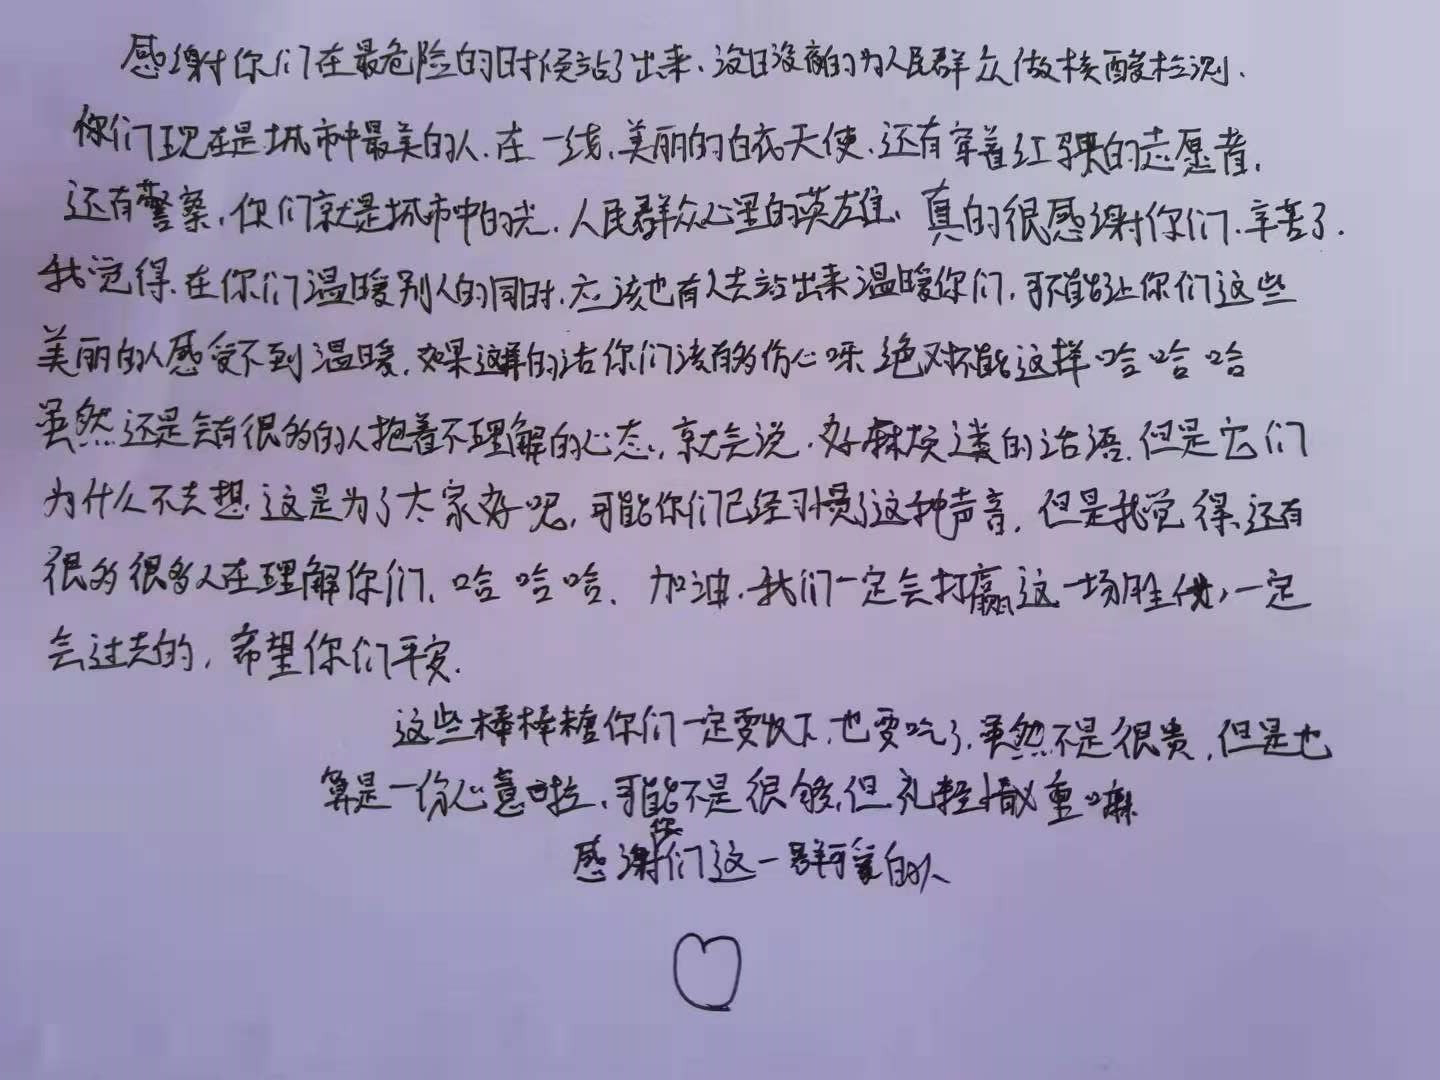 感谢你们在最危险的时候站了出来、没日没夜的为人民群众做核酸检测.
你们现在是城市中最美的人.在一线,美丽的白衣天使.还有穿着红马甲的志愿者,
还有警察,你们就是城市中的光.人民群众心里的英雄、真的很感谢你们.辛苦了.
我觉得.在你们温暖别人的同时.应该也有人去站出来温暖你们,可不能让你们这些
美丽的人感受不到温暖.如果这样的话你们该有多伤心呀 绝对不能这样 哈哈哈
虽然还是会有很多的人抱着不理解的心态,就会说.好麻烦之类的话语.但是它们
为什么不去想.这是为了大家好呢,可能你们已经习惯了这种声音.但是我觉得、还有
很多很多人在理解你们、哈哈哈、加油.我们一定会打赢这一场胜仗,一定
会过去的,希望你们平安.
这些棒棒糖你们一定要收下.也要吃了.虽然不是很贵,但是也
算是一份心意啦、可能不是很够,但礼轻情义重嘛
感谢你们这一群可爱的人